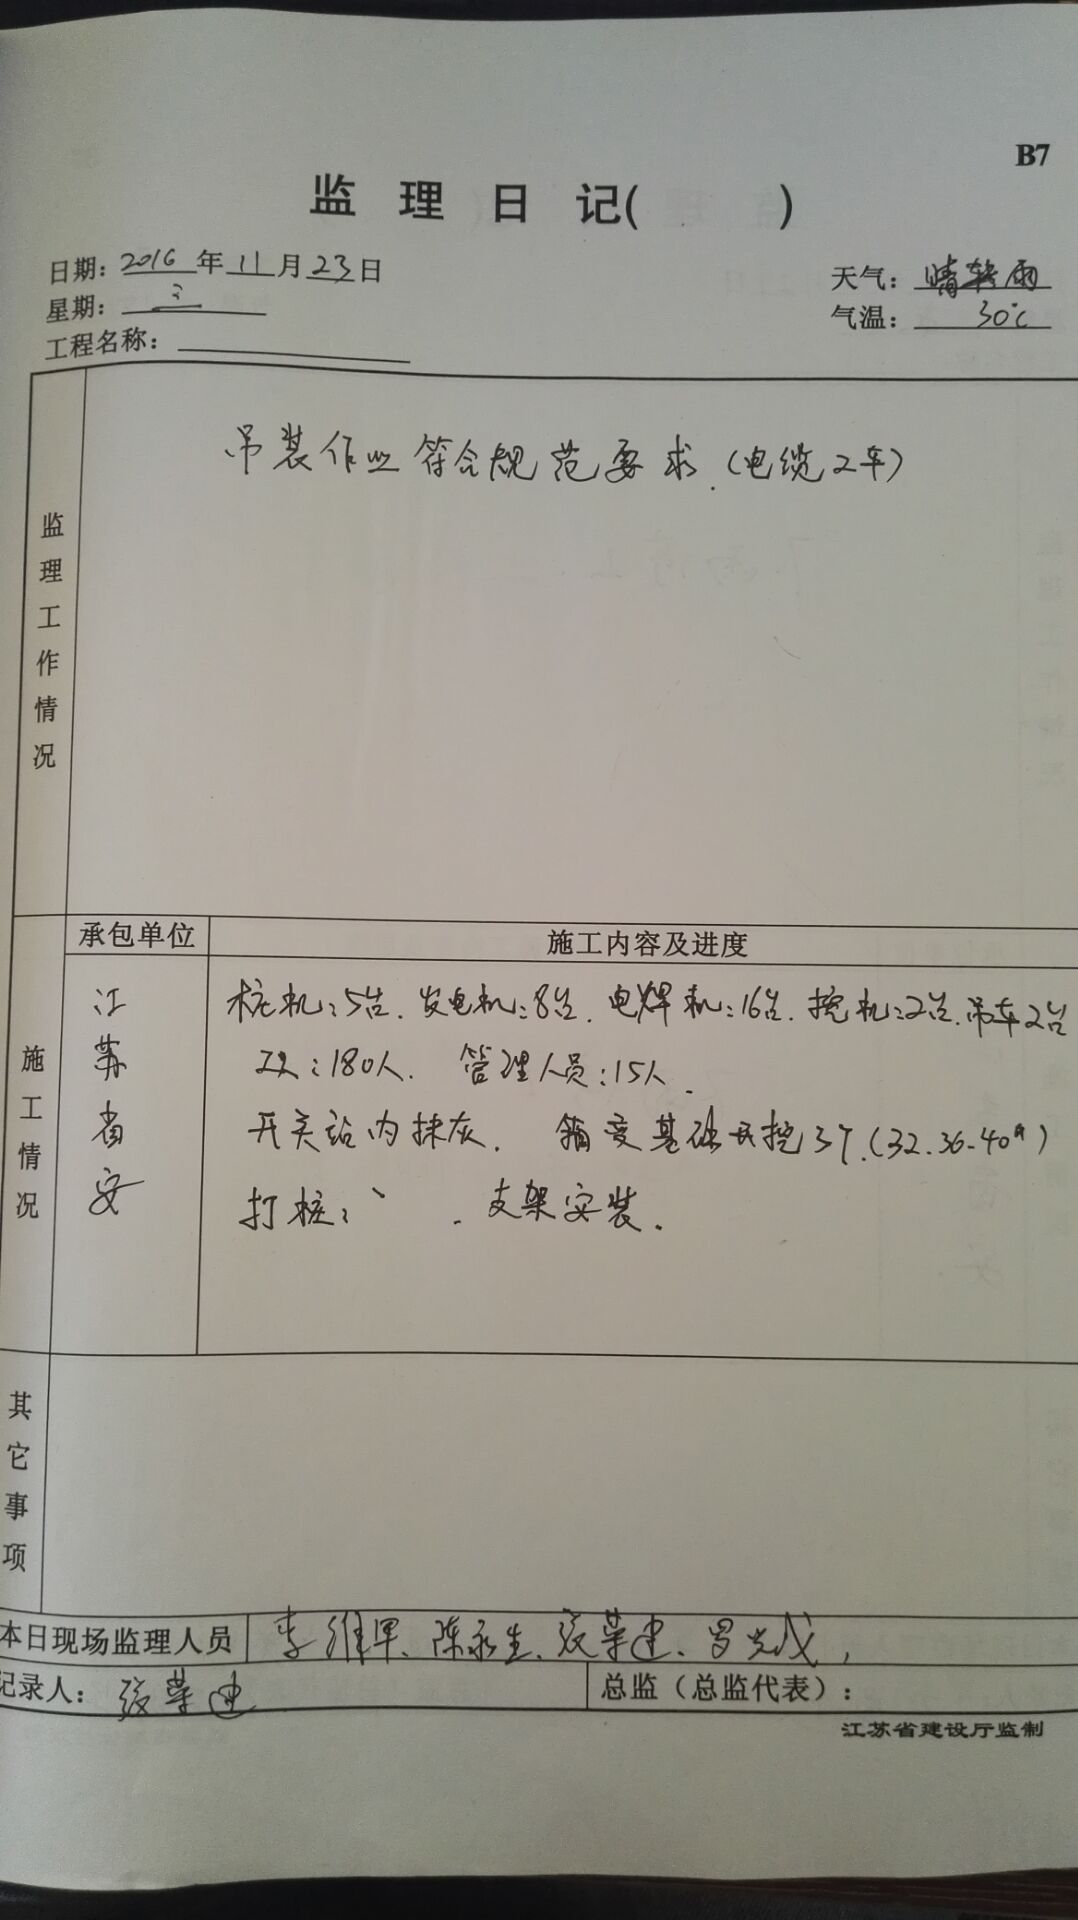 B7
监 理 日 记(　　)
日期: 2016 年 11 月 23 日
天气: 晴转雨
星期: 3
气温: 30℃
工程名称:
监理工作情况
吊装作业符合规范要求.(电缆2车)
施工情况
承包单位
施工内容及进度
江苏省安
桩机:5台. 发电机:8台. 电焊机:16台. 挖机:2台. 吊车2台
工人:180人. 管理人员:15人.
开关站内抹灰. 箱变基础开挖3个.(32.36.40#)
打桩: . 支架安装.
其它事项
本日现场监理人员
李维军、陈永生、张荣建、罗光成,
记录人: 张荣建
总监(总监代表):
江苏省建设厅监制